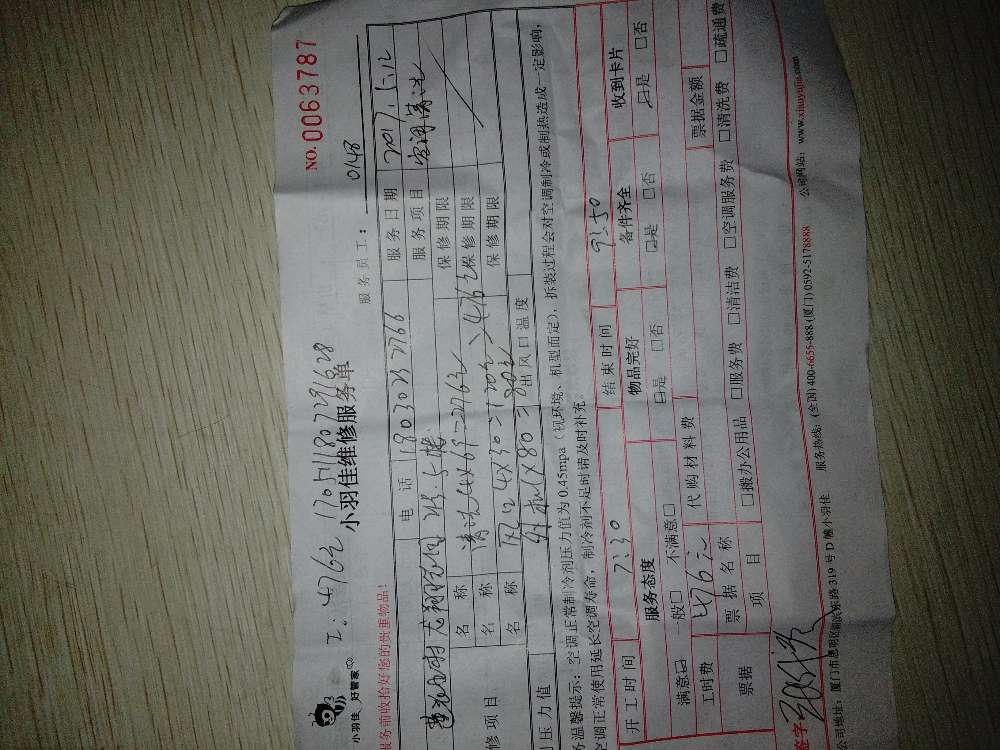 工:476元 170511807291628
NO. 0063787
小羽佳 好管家
小羽佳维修服务单
服务员工: 0148
服务前收拾好您的贵重物品!
电话 18030232766
服务日期 2017.5.12
服务项目 空调清洗
名称 清洗4X69=276元 保修期限
名称 4X30=120元 476元 保修期限
名称 外机1X80=80元 保修期限
修项目
压力值
出风口温度
务温馨提示:空调正常制冷剂压力值为0.45mpa(视环境、机型而定),拆装过程会对空调制冷或制热造成一定影响,
空调正常使用延长空调寿命,制冷剂不足时请及时补充。
开工时间 7:30 结束时间 9:50
服务态度 物品完好 备件齐全 收到卡片
满意□ 一般□ 不满意□ □是 □否 □是 □否 □是 □否
工时费 476元 代购材料费
票据 票据名称 票据金额
项目 □搬办公用品 □服务费 □清洁费 □空调服务费 □清洗费 □疏通费
签字
公司地址:厦门市思明区湖滨东路319号D幢小羽佳 服务热线:(全国)400-6655-888(厦门)0592-5178888 公司网站:www.xiaoyujia.com